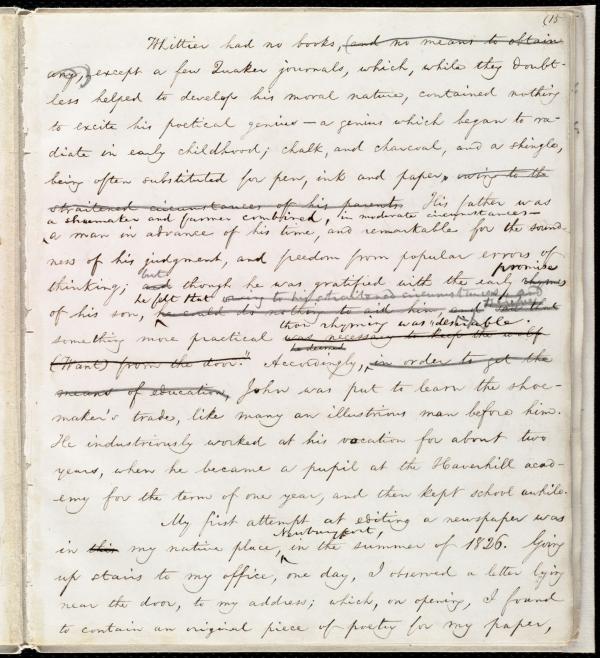 (15
Whittier had no books, (and no means to obtain
any,) except a few Quaker journals, which, while they doubt-
less helped to develop his moral nature, contained nothing
to excite his poetical genius—a genius which began to ra-
diate in early childhood; chalk, and charcoal, and a shingle,
being often substituted for pen, ink and paper, owing to the
straitened circumstances of his parents. His father was
a shoemaker and farmer combined, in moderate circumstances—
a man in advance of his time, and remarkable for the sound-
ness of his judgment, and freedom from popular errors of
but promise
thinking; and though he was gratified with the early rhymes
he felt that owing to his straitened circumstances,
of his son, he could do nothing to aid him, and
than rhyming was "desirable.
something more practical was necessary to keep the wolf
he deemed
(Want) from the door." Accordingly, in order to get the
means of education, John was put to learn the shoe-
maker's trade, like many an illustrious man before him.
He industriously worked at his vocation for about two
years, when he became a pupil at the Haverhill acad-
emy for the term of one year, and then kept school awhile.
My first attempt at editing a newspaper was
Newburyport,
in this my native place, in the summer of 1826. Going
up stairs to my office, one day, I observed a letter lying
near the door, to my address; which, on opening, I found
to contain an original piece of poetry for my paper,